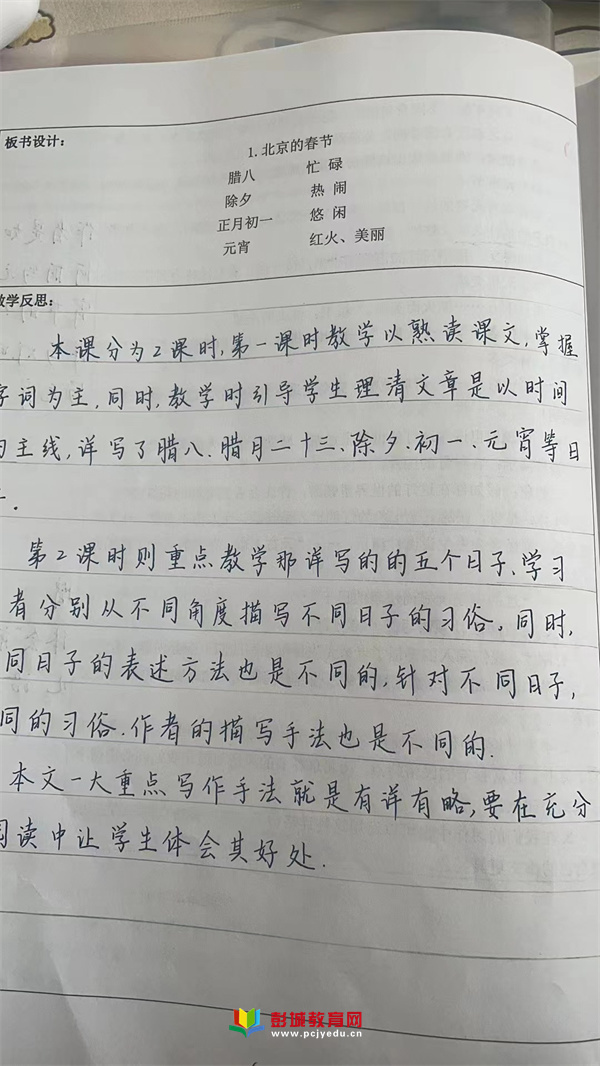 板书设计：
1.北京的春节
腊八 忙 碌
除夕 热 闹
正月初一 悠 闲
元宵 红火、美丽
学反思：
本课分为2课时,第一课时教学以熟读课文,掌握
字词为主,同时,教学时引导学生理清文章是以时间
主线,详写了腊八、腊月二十三、除夕、初一、元宵等日
第2课时则重点教学那详写的的五个日子、学习
者分别从不同角度描写不同日子的习俗,同时,
同日子的表述方法也是不同的,针对不同日子,
同的习俗,作者的描写手法也是不同的.
本文一大重点写作手法就是有详有略,要在充分
阅读中让学生体会其好处.
彭城教育网
www.pcjyedu.cn